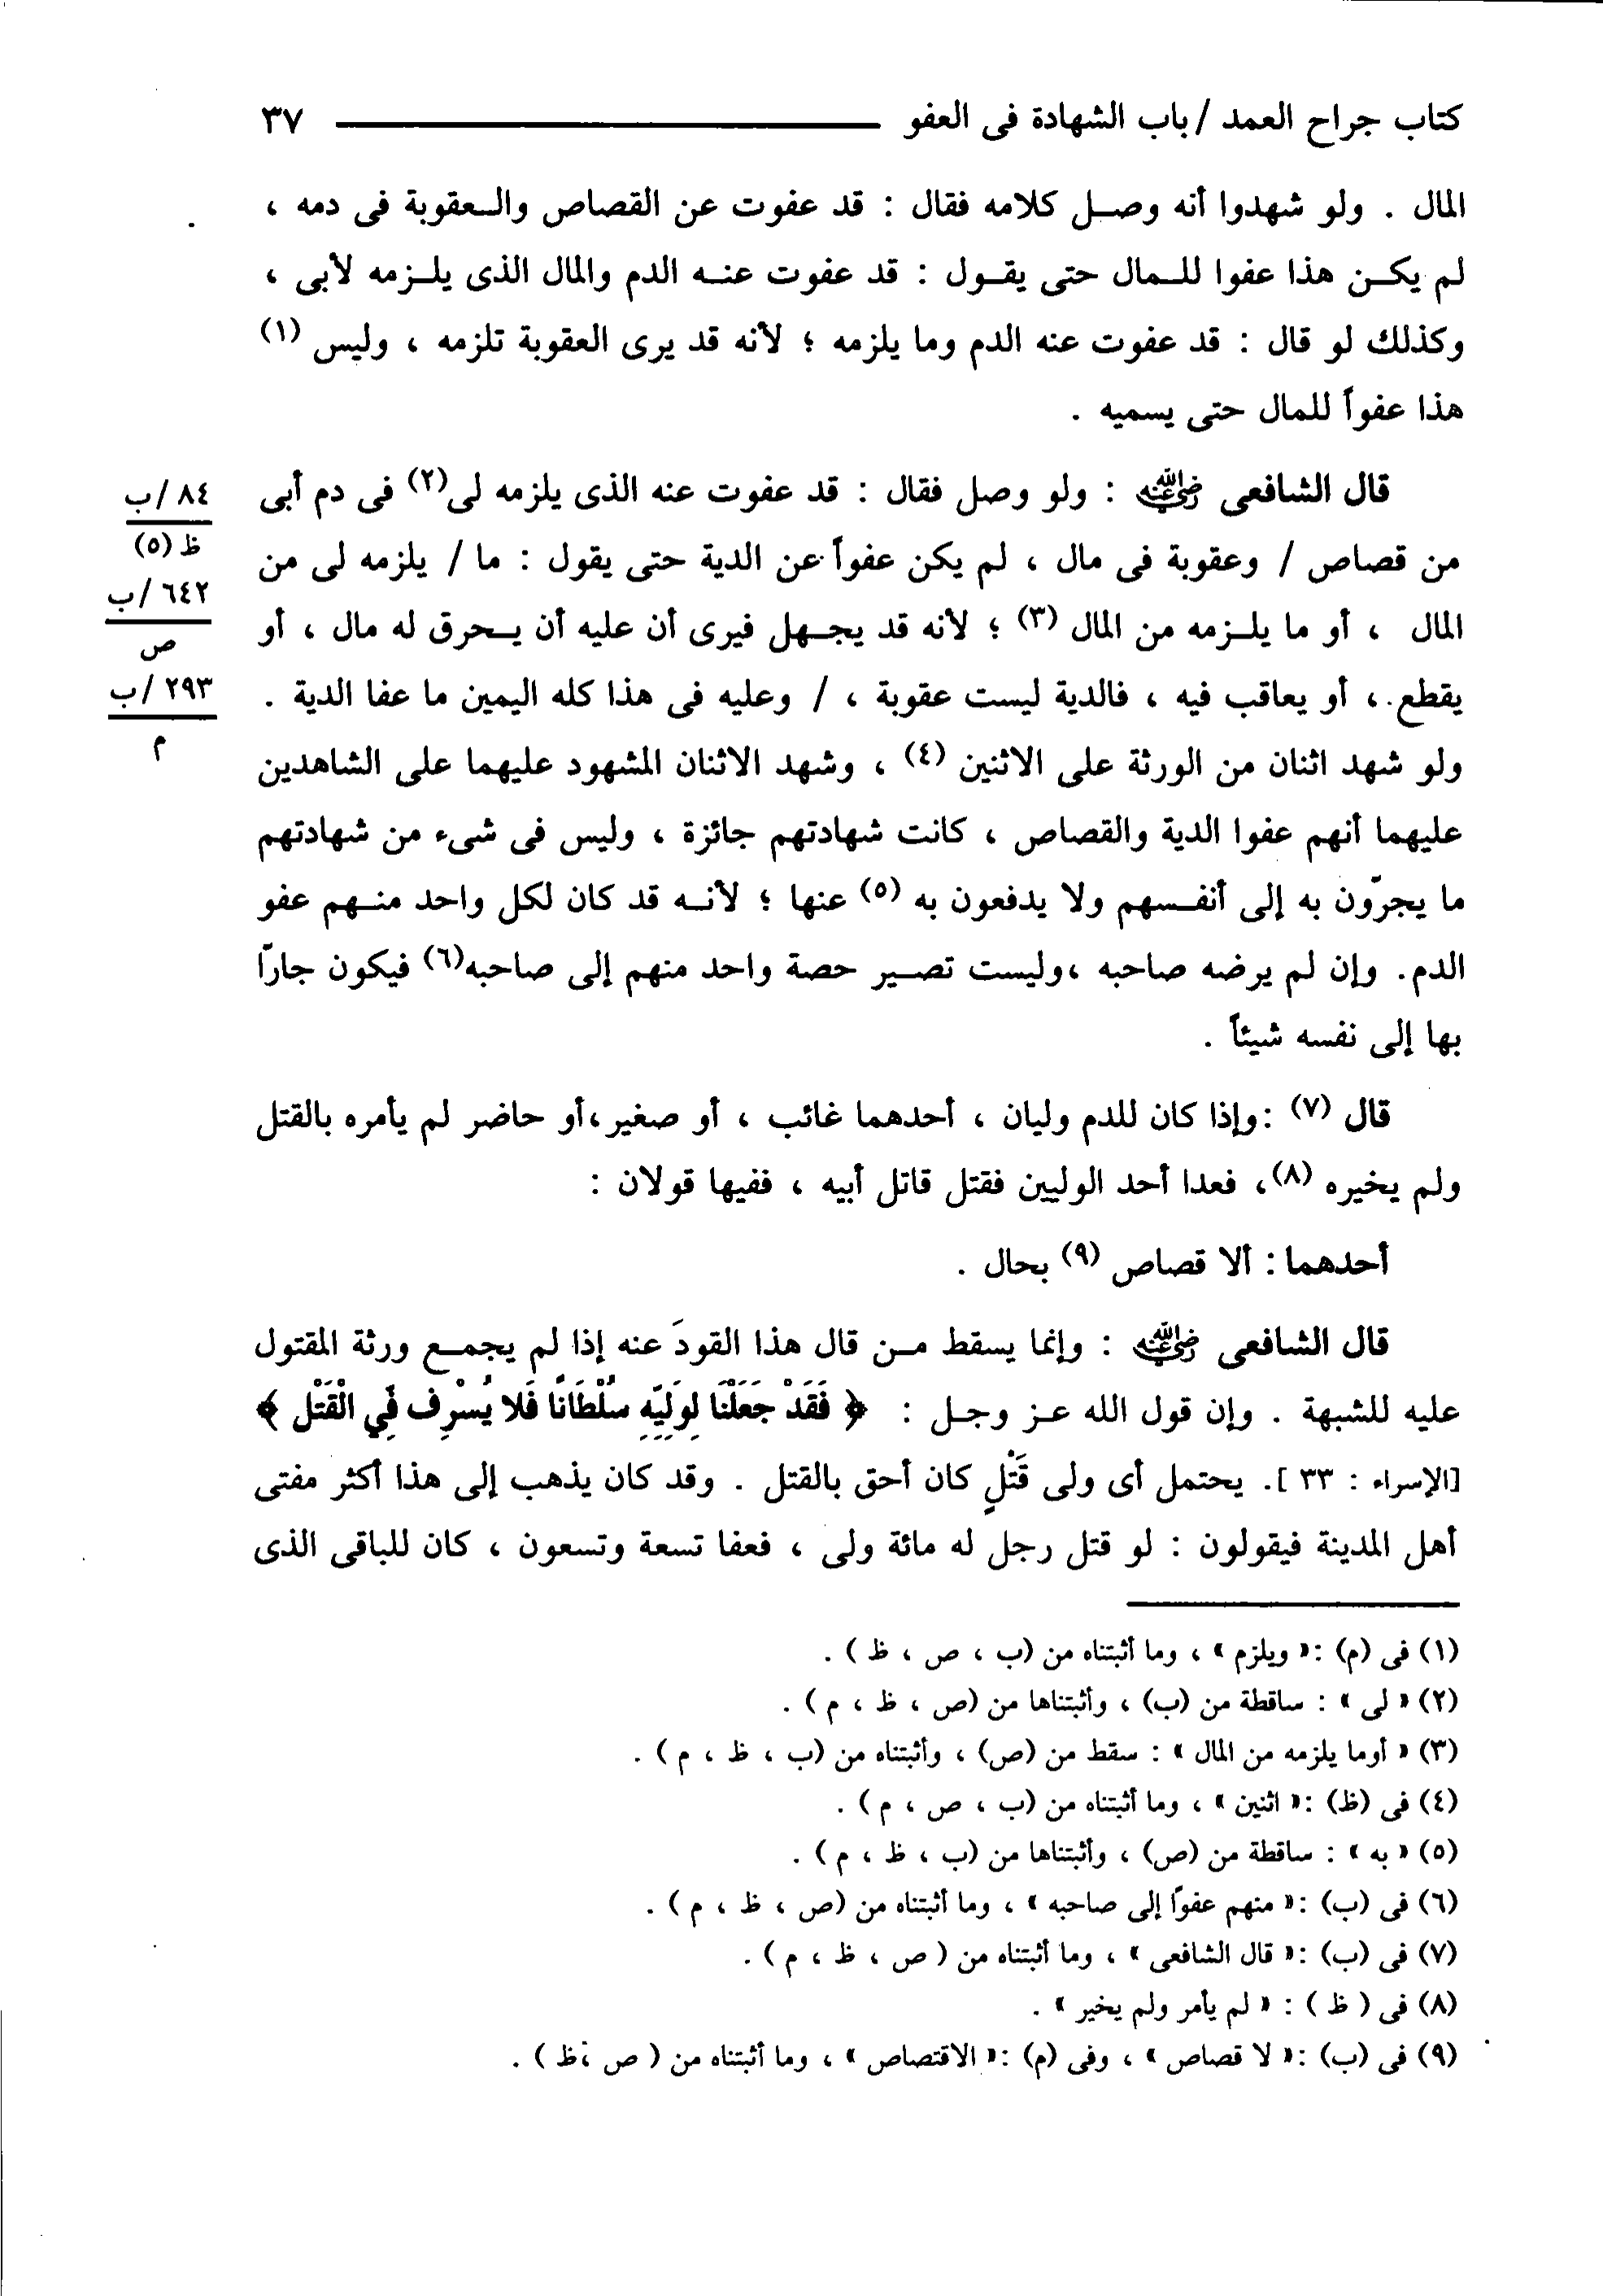 كتاب جراح العمد / باب الشهادة فى العفو ٣٧
المال . ولو شهدوا أنه وصل كلامه فقال : قد عفوت عن القصاص والعقوبة فى دمه ،
لم يكن هذا عفوا للمال حتى يقول : قد عفوت عنه الدم والمال الذى يلزمه لأبى ،
وكذلك لو قال : قد عفوت عنه الدم وما يلزمه ؛ لأنه قد يرى العقوبة تلزمه ، وليس (١)
هذا عفواً للمال حتى يسميه .
قال الشافعى رضي الله عنه : ولو وصل فقال : قد عفوت عنه الذى يلزمه لى(٢) فى دم أبى
من قصاص / وعقوبة فى مال ، لم يكن عفواً عن الدية حتى يقول : ما / يلزمه لى من
المال ، أو ما يلزمه من المال (٣) ؛ لأنه قد يجهل فيرى أن عليه أن يحرق له مال ، أو
يقطع ، أو يعاقب فيه ، فالدية ليست عقوبة ، / وعليه فى هذا كله اليمين ما عفا الدية .
ولو شهد اثنان من الورثة على الاثنين (٤) ، وشهد الاثنان المشهود عليهما على الشاهدين
عليهما أنهم عفوا الدية والقصاص ، كانت شهادتهم جائزة ، وليس فى شىء من شهادتهم
ما يجرّون به إلى أنفسهم ولا يدفعون به (٥) عنها ؛ لأنه قد كان لكل واحد منهم عفو
الدم. وإن لم يرضه صاحبه ،وليست تصير حصة واحد منهم إلى صاحبه(٦) فيكون جارّا
بها إلى نفسه شيئاً .
قال (٧) :وإذا كان للدم وليان ، أحدهما غائب ، أو صغير،أو حاضر لم يأمره بالقتل
ولم يخيره (٨)، فعدا أحد الوليين فقتل قاتل أبيه ، ففيها قولان :
أحدهما : ألا قصاص (٩) بحال .
قال الشافعى رضي الله عنه : وإنما يسقط من قال هذا القودَ عنه إذا لم يجمع ورثة المقتول
عليه للشبهة . وإن قول الله عز وجل : ﴿ فَقَدْ جَعَلْنَا لِوَلِيِّهِ سُلْطَانًا فَلا يُسْرِف فِّي الْقَتْلِ ﴾
[الإسراء : ٣٣ ]. يحتمل أى ولى قَتْلٍ كان أحق بالقتل . وقد كان يذهب إلى هذا أكثر مفتى
أهل المدينة فيقولون : لو قتل رجل له مائة ولى ، فعفا تسعة وتسعون ، كان للباقى الذى
٨٤ /ب
ظ (٥)
٦٤٢ /ب
ص
٢٩٣ /ب
م
(١) فى (م) :« ويلزم » ، وما أثبتناه من (ب ، ص ، ظ ) .
(٢) « لى » : ساقطة من (ب) ، وأثبتناها من (ص ، ظ ، م ) .
(٣) « أوما يلزمه من المال » : سقط من (ص) ، وأثبتناه من (ب ، ظ ، م ) .
(٤) فى (ظ) :« اثنين » ، وما أثبتناه من (ب ، ص ، م ) .
(٥) « به » : ساقطة من (ص) ، وأثبتناها من (ب ، ظ ، م ) .
(٦) فى (ب) :« منهم عفوًا إلى صاحبه » ، وما أثبتناه من (ص ، ظ ، م ) .
(٧) فى (ب) :« قال الشافعى » ، وما أثبتناه من ( ص ، ظ ، م ) .
(٨) فى ( ظ ) : « لم يأمر ولم يخير » .
(٩) فى (ب) :« لا قصاص » ، وفى (م) :« الاقتصاص » ، وما أثبتناه من ( ص ،ظ ) .